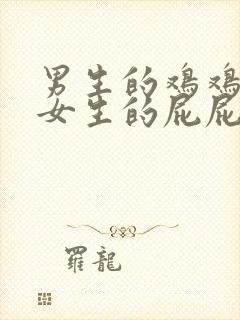 男生的鸡鸡
女生的屁屁
羅龍